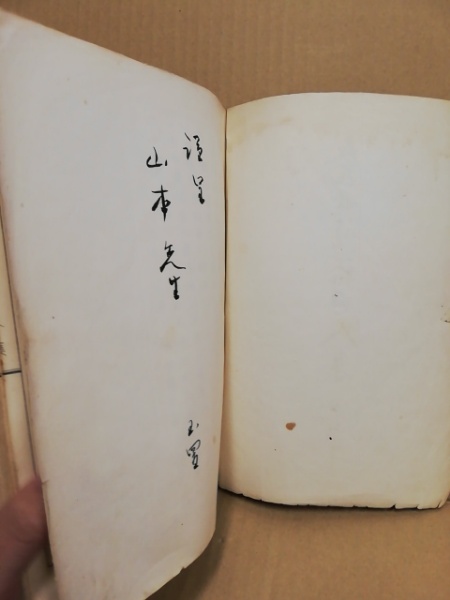 謹呈
山本先生
玉置